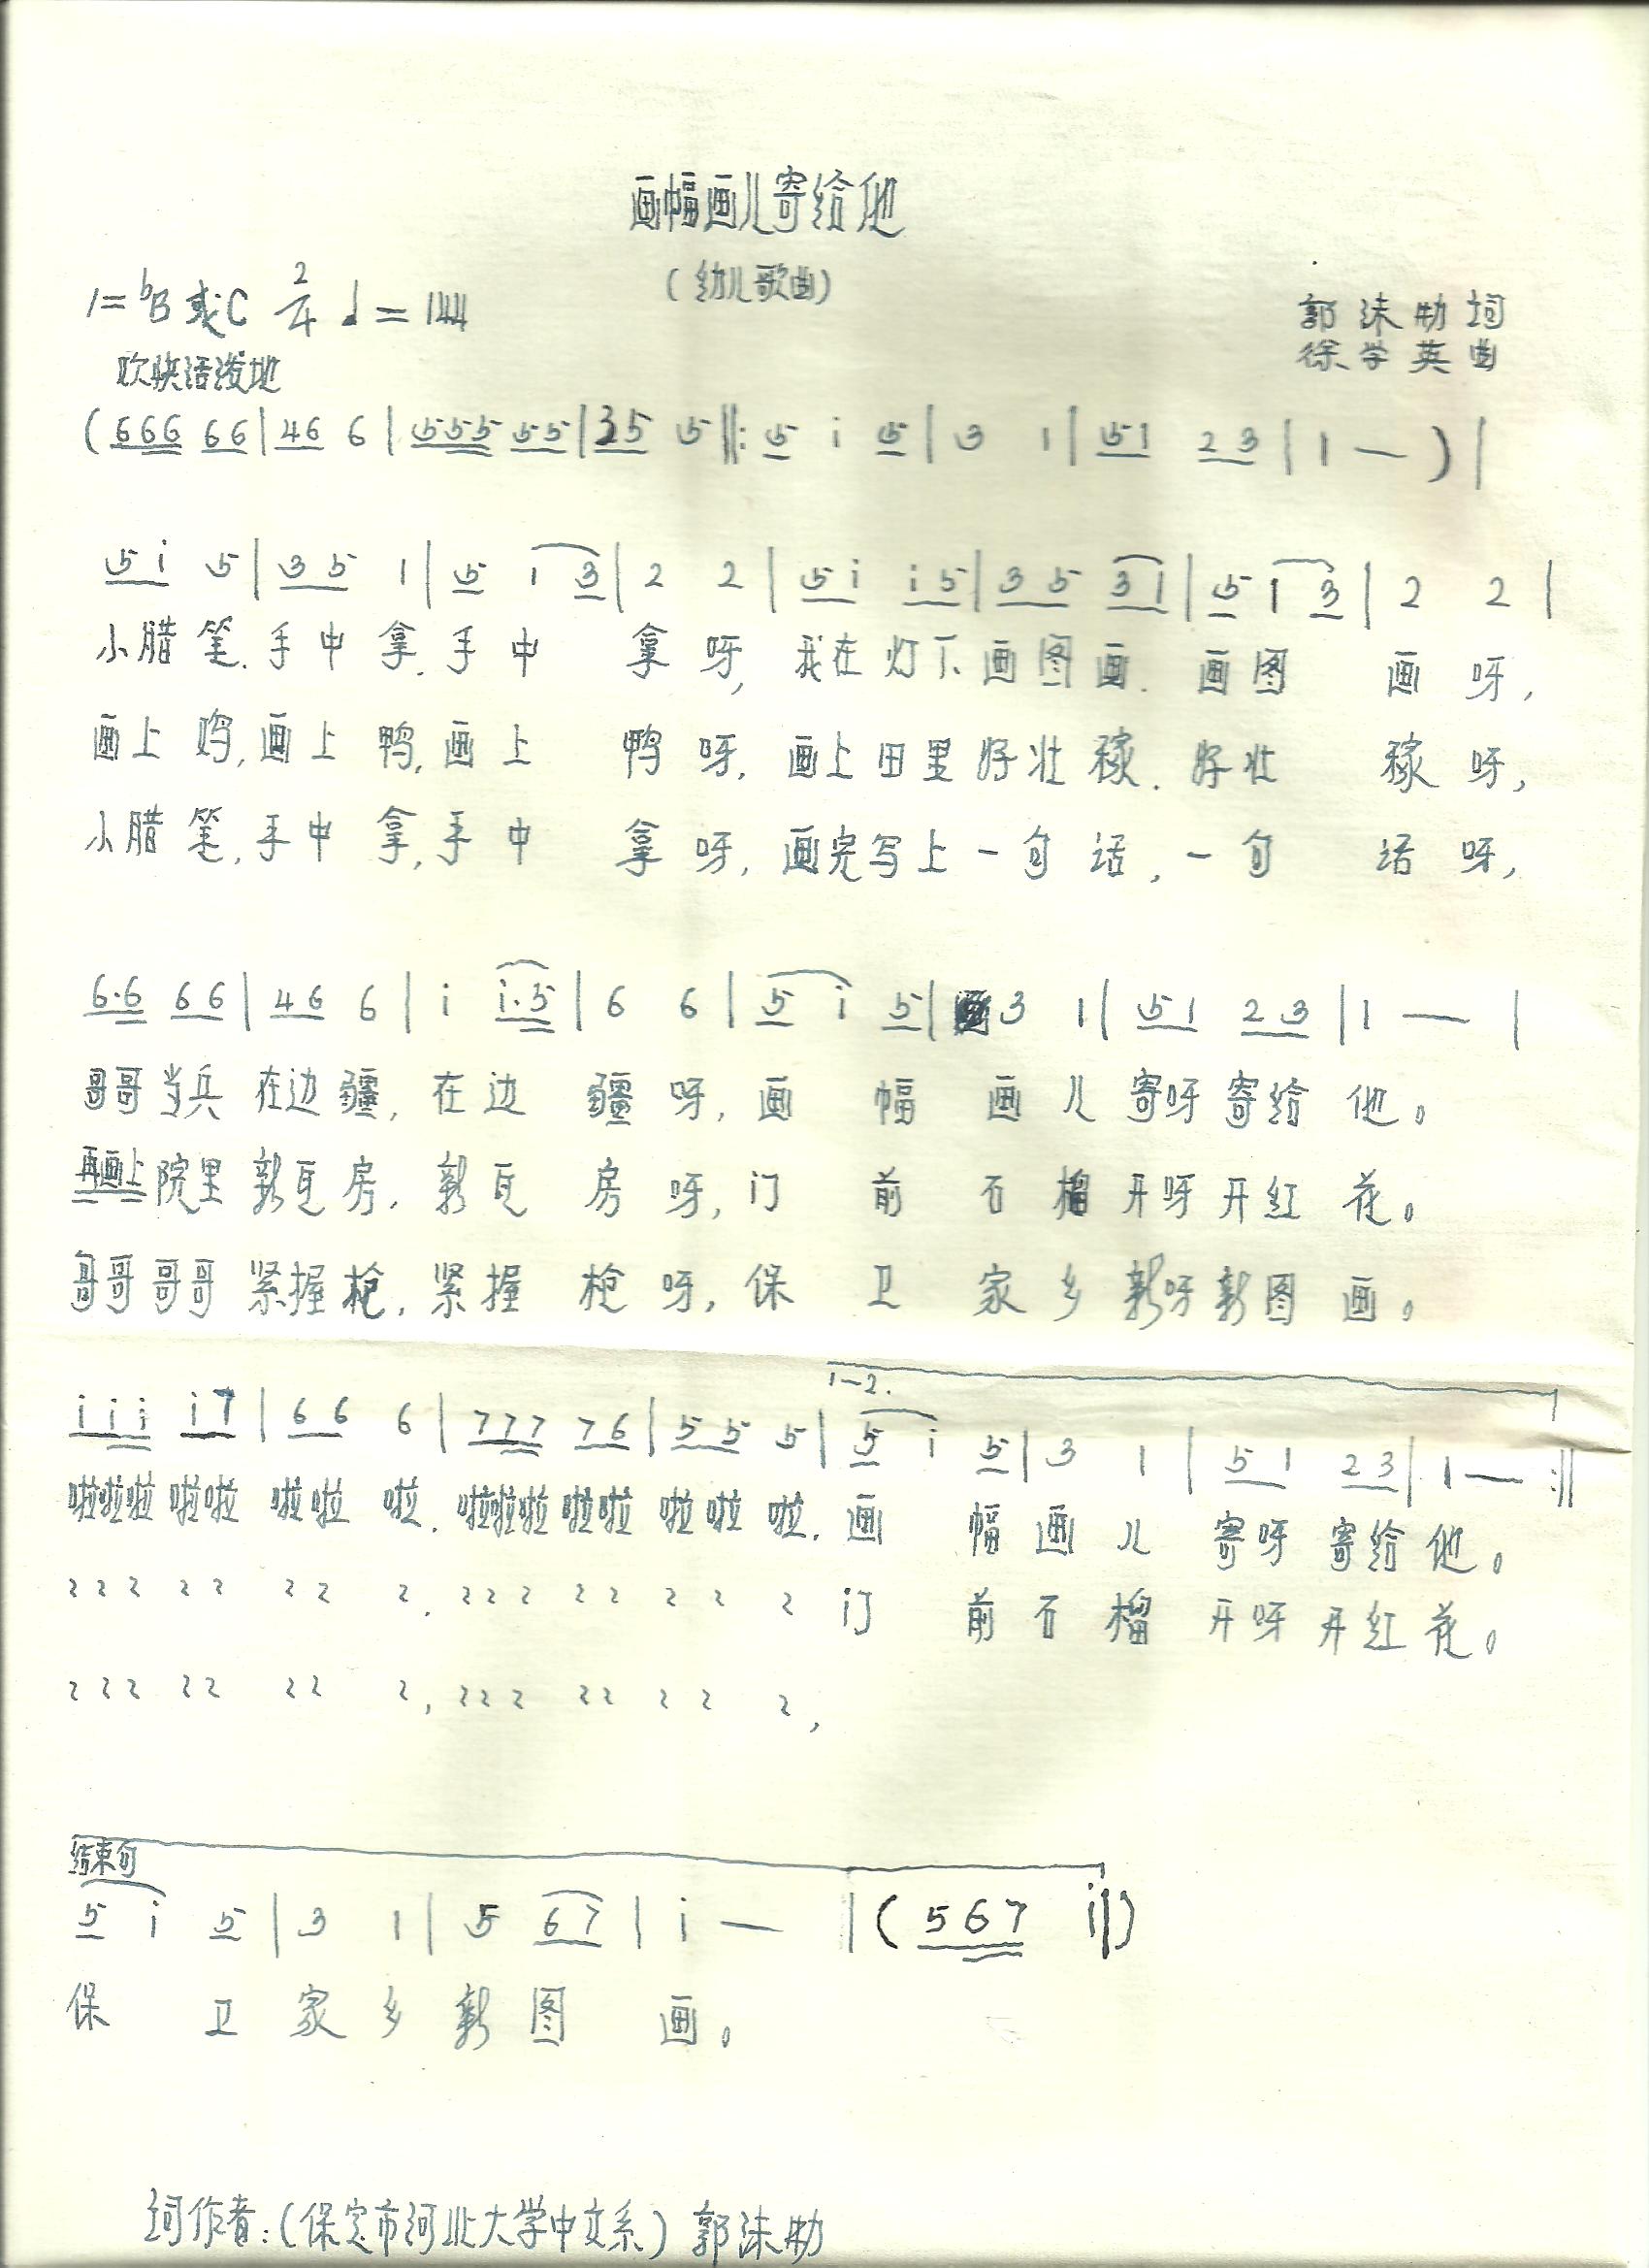 画幅画儿寄给他
(幼儿歌曲)
1=ᵇB或C 2/4 ♩=144
郭沫勋 词
欢快活泼地
徐学英 曲
(666 66|46 6|555 55|35 5‖:5 i 5|3 1|51 23|1 —)|
5i 5|35 1|5 1 3|2 2|5i i5|35 31|5 1 3|2 2|
小腊笔.手中拿.手中 拿呀,我在灯下画图画.画图 画呀,
画上鸡,画上鸭,画上 鸭呀,画上田里好壮稼.好壮 稼呀,
小腊笔,手中拿,手中 拿呀,画完写上一句话,一句 话呀,
6·6 66|46 6|i i·5|6 6|5 i 5|3 1|51 23|1 —|
哥哥当兵在边疆,在边 疆呀,画 幅 画儿寄呀寄给他。
再画上院里新瓦房.新瓦 房呀,门 前 石榴开呀开红花。
哥哥哥哥紧握枪,紧握 枪呀,保 卫 家乡新呀新图画。
1—2.
iii i7|66 6|777 76|55 5|5 i 5|3 1|51 23|1 — :‖
啦啦啦啦啦 啦啦 啦.啦啦啦啦啦 啦啦 啦.画 幅画儿 寄呀寄给他。
ζζζ ζζ ζζ ζ.ζζζ ζζ ζζ ζ 门 前石榴 开呀开红花。
ζζζ ζζ ζζ ζ,ζζζ ζζ ζζ ζ,
结束句
5 i 5|3 1|5 67|i — |(567 i‖)
保 卫家乡新图 画。
词作者:(保定市河北大学中文系)郭沫勋